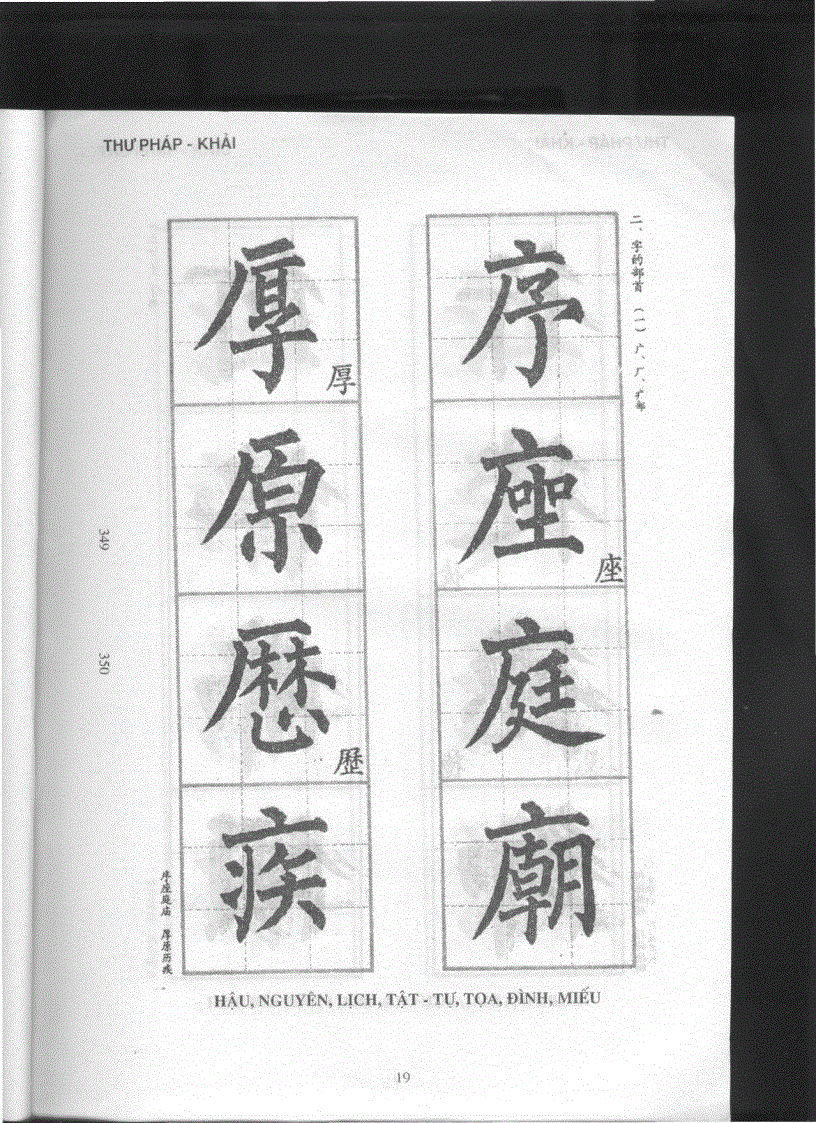 THƯ PHÁP - KHẢI
二、字的部首 （一） 广、厂、疒部
序
座
座
庭
廟
厚
厚
原
歷
疾
序座庭庙 厚原历疾
349
350
HẬU, NGUYÊN, LỊCH, TẬT - TỰ, TỌA, ĐÌNH, MIẾU
19